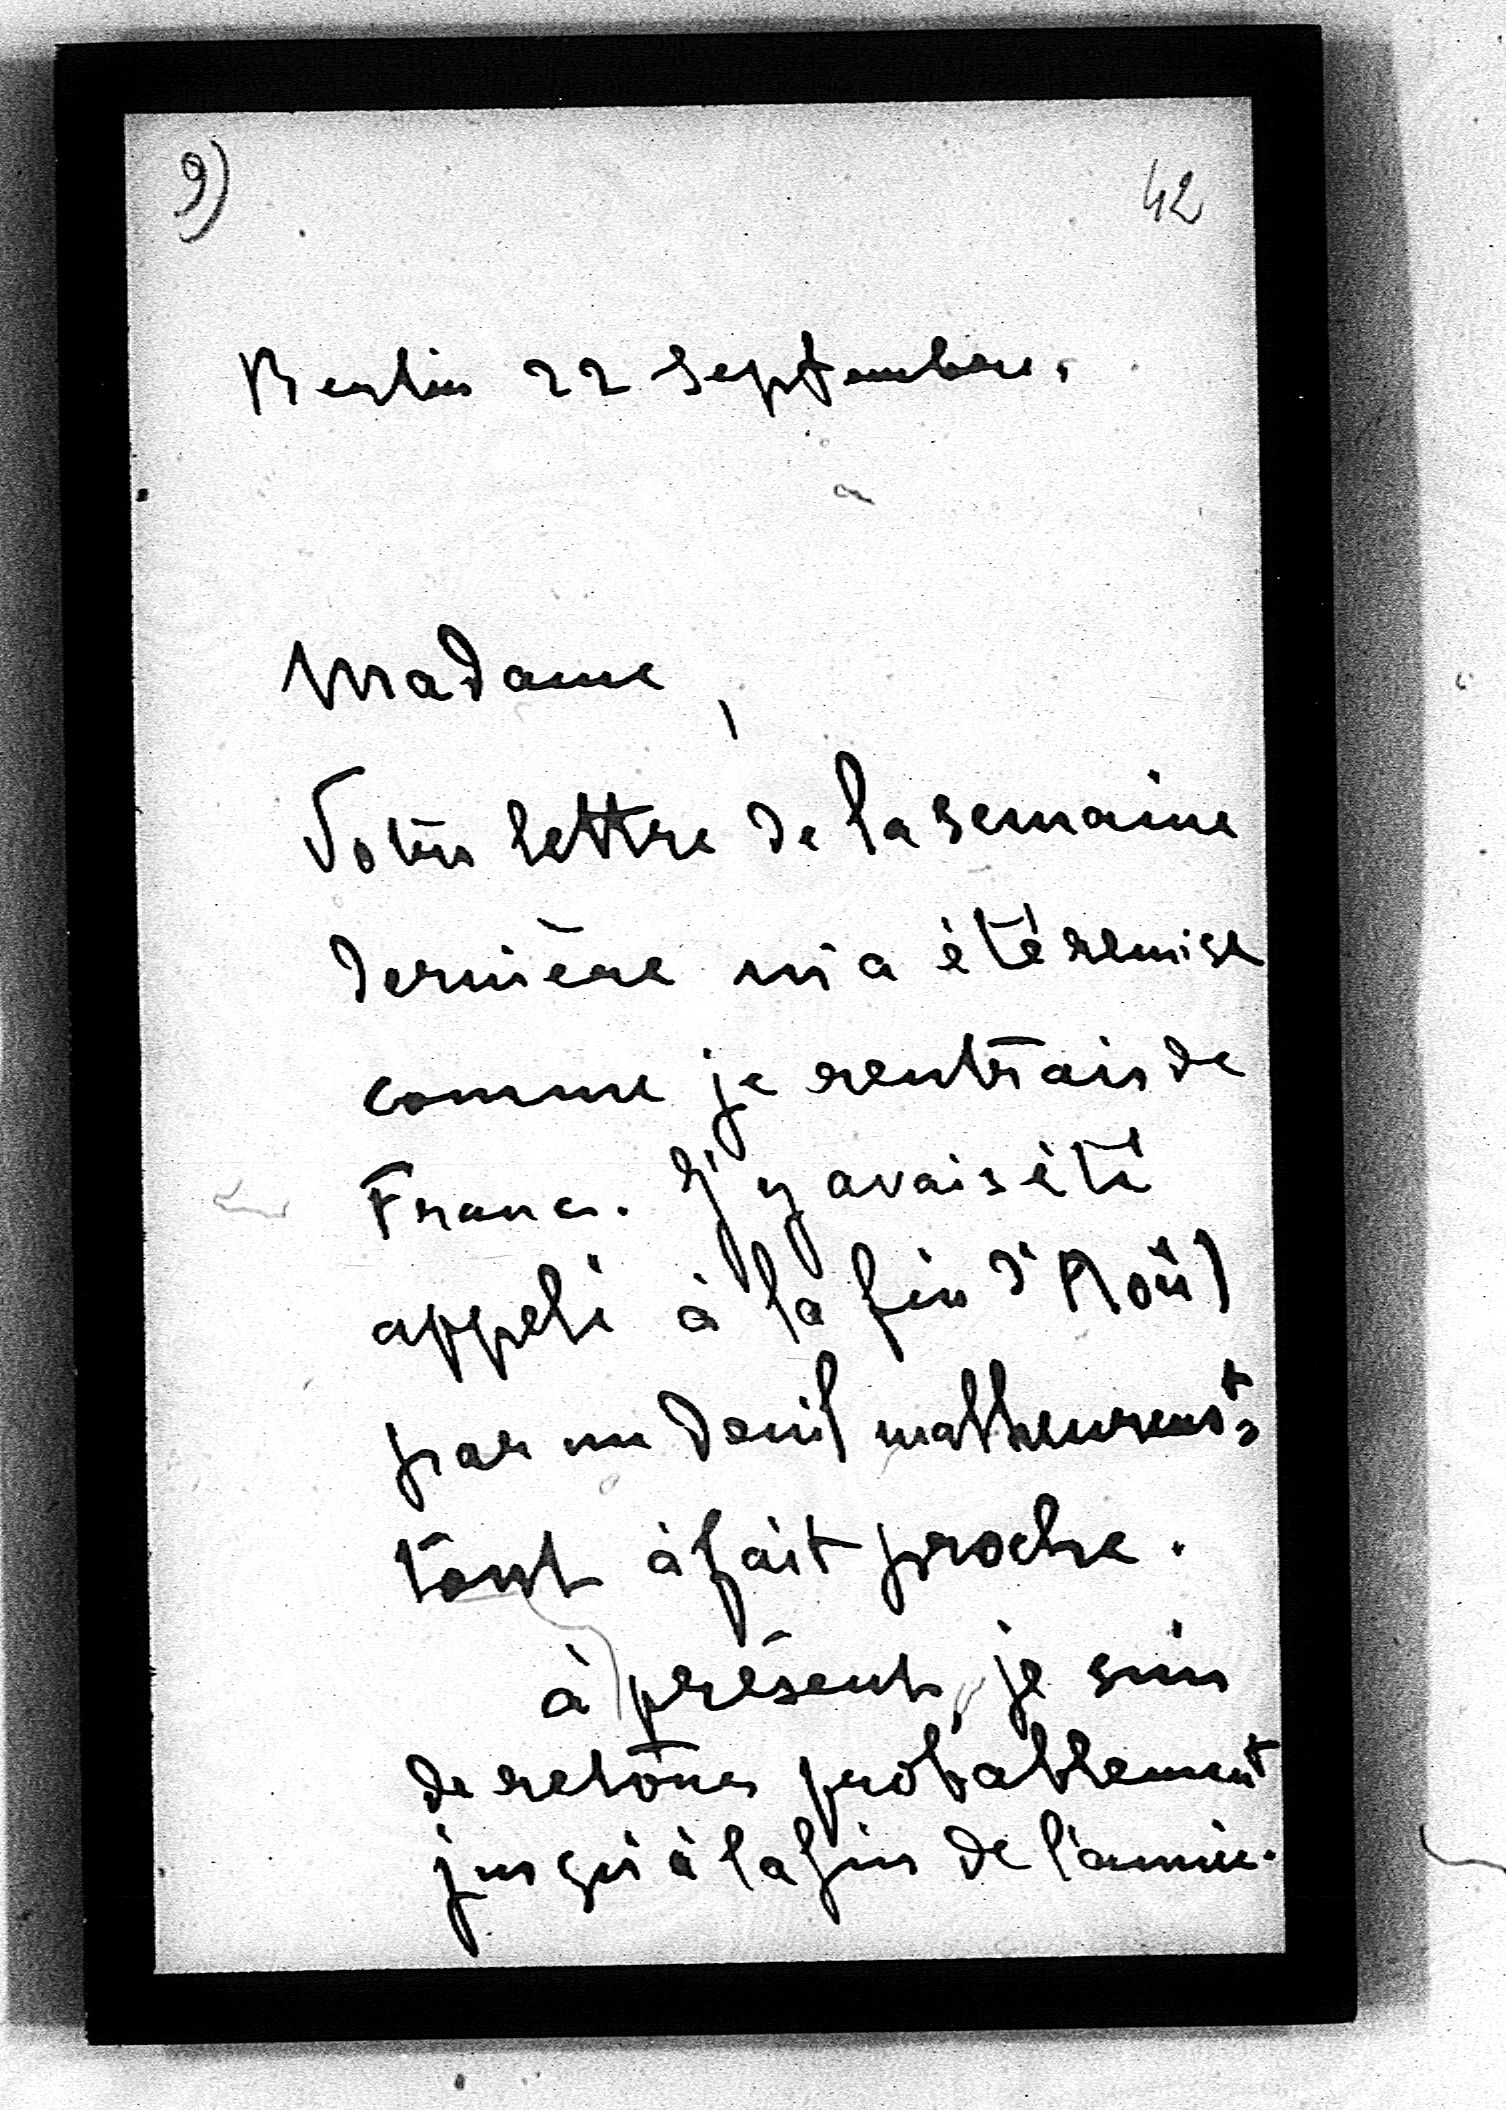 9)
42
Berlin 22 septembre.
Madame,
Votre lettre de la semaine
dernière m'a été remise
comme je rentrais de
France. J'y avais été
appelé à la fin d'Août
par un deuil malheureust,
tout à fait proche.
à présent, je suis
de retour probablement
jusqu'à la fin de l'année.